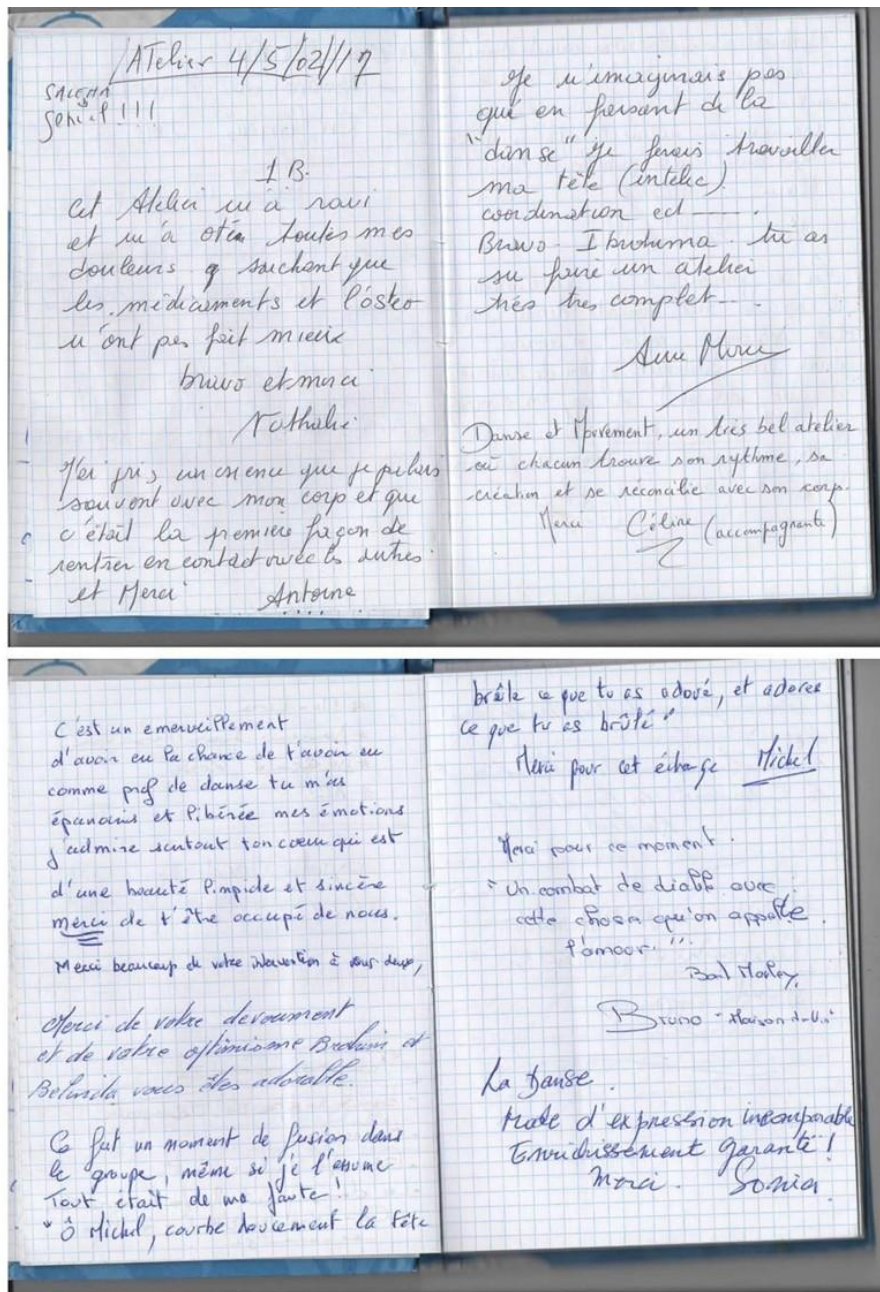 ATelier 4/5/02/17
SALEHA
génial !!!
I B.
Cet Atelier m'a ravi
et m'a otée toutes mes
douleurs sachant que
les médicaments et l'ostéo
n'ont pas fait mieux
bravo et merci
Nathalie
J'ai pris conscience que je parlais
souvent avec mon corp et que
c'était la première façon de
rentrer en contact avec les autres
et Merci Antoine
Je n'imaginais pas
que en faisant de la
"danse" je ferais travailler
ma tête (intelec)
coordination ect
Bravo Ibrohima tu as
su faire un atelier
très très complet
Danse et Movement, un très bel atelier
où chacun trouve son rythme, sa
création et se réconcilie avec son corp.
Merci Céline (accompagnante)
C'est un emerveillement
d'avoir eu la chance de t'avoir eu
comme prof de danse tu m'as
épanouis et libérée mes émotions
j'admire surtout ton coeur qui est
d'une beauté limpide et sincère
merci de t'être occupé de nous.
Merci beaucoup de votre intervention à vous deux,
Merci de votre devoument
et de votre optimisme Brahim et
Belinda vous êtes adorable.
Ce fut un moment de fusion dans
le groupe, même si je l'assume
Tout était de ma faute !
" ô Michel, courbe doucement la tête
brûle ce que tu as adoré, et adores
ce que tu as brûlé"
Merci pour cet échange Michel
Merci pour ce moment.
"Un combat de diable avec
cette chose qu'on appelle
l'amour."
Bob Marley
Bruno - Maison de Vie
La Danse.
Mode d'expression incomparable
Enrichissement garanti !
Merci. Sonia